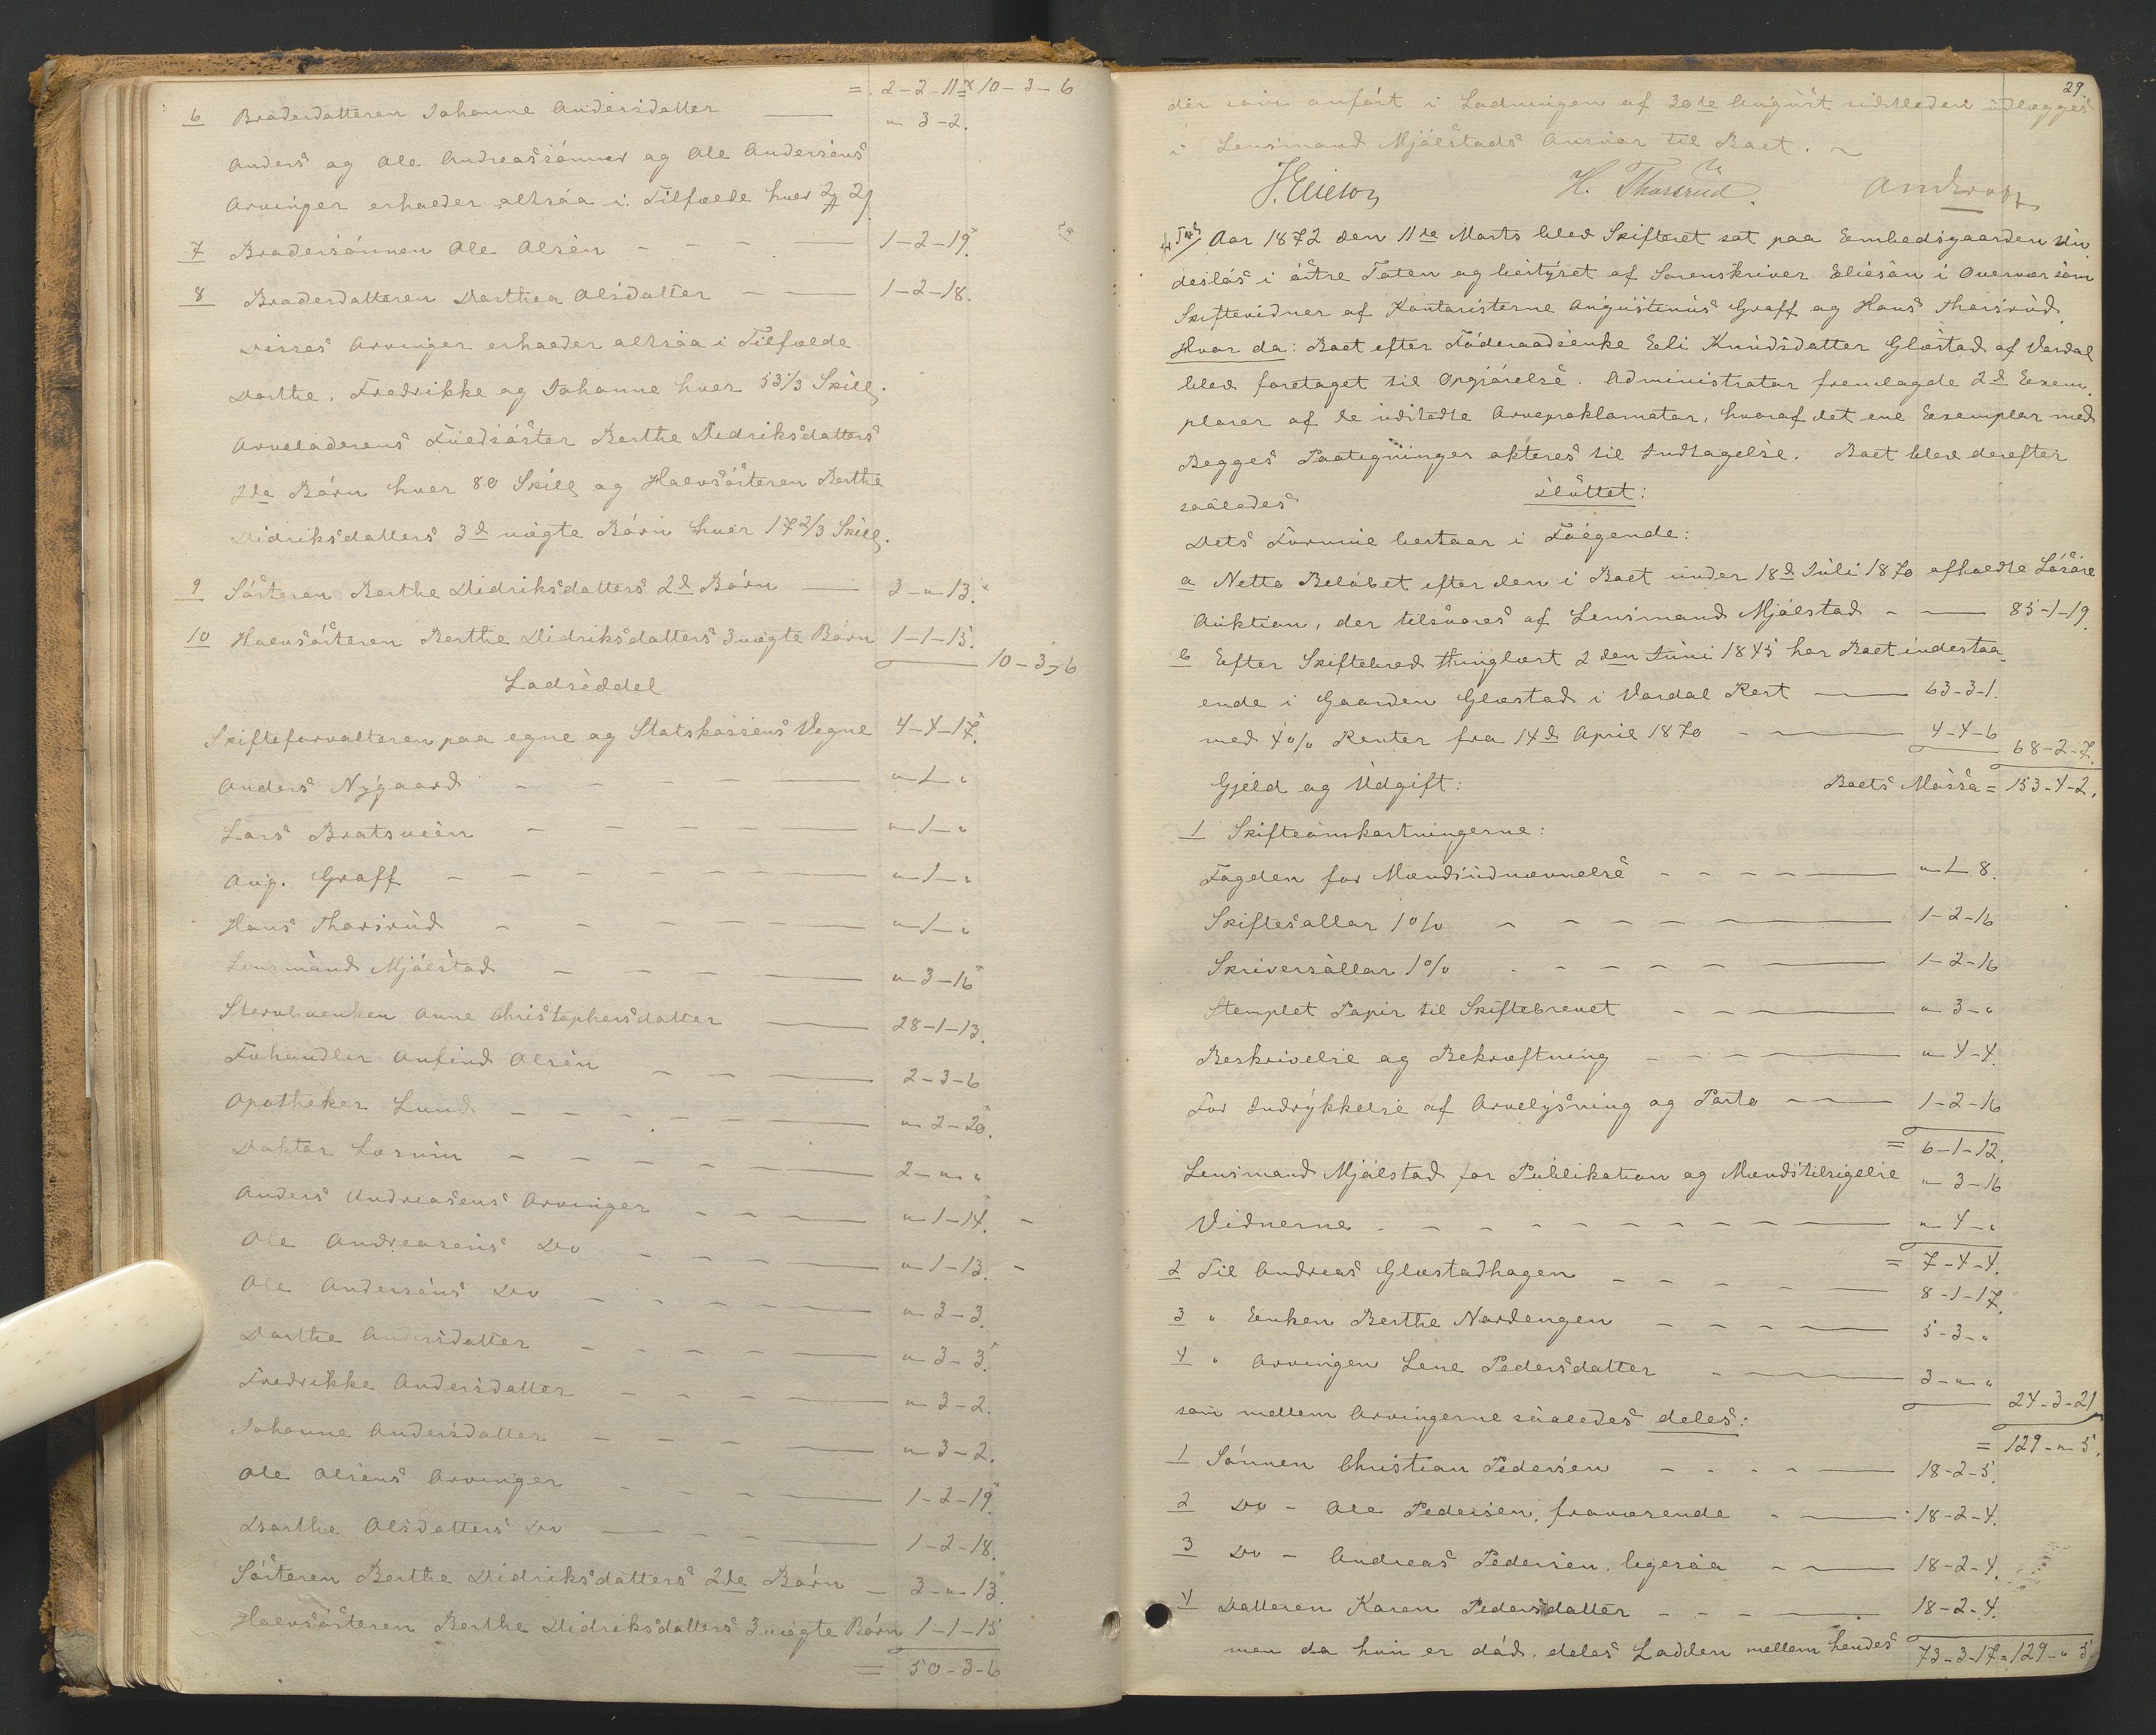 = 2-2-11 10-3-6
6 Broderdatteren Johanne Andersdatter — " 3-2.
Anders og Ole Andreassønner og Ole Andersens
Arvinger erholder altsaa i Tilfælde hver
7 Brodersønnen Ole Olsen - - - 1-2-19.
8 Broderdatteren Dorthea Olsdatter — 1-2-18.
Disses Arvinger erholder altsaa i Tilfælde
Dorthe, Fredrikke og Johanne hver 53 1/3 Skill.
Arveladerens Søster Berthe Didriksdatters
2de Børn hver 80 Skill og Halvsøsteren Berthe
Didriksdatters 3d uægte Børn hver 17 2/3 Skill.
9 Søsteren Berthe Didriksdatters 2d Børn — 3-"-13.
10 Halvsøsteren Berthe Didriksdatters 3 uægte Børn 1-1-15.
10-3-6
Lodseddel
Skifteforvalteren paa egne og Statskassens Vegne 4-4-17.
Anders Nygaard - - - - "-1-"
Lars Bratsveen - - - - "-1-"
Aug. Graff - - - - "-1-"
Hans Thorsrud - - - - "-1-"
Lensmand Mjølstad - - - "-3-16
Stervboenken Anne Christophersdatter — 28-1-13.
Føhandler Anfind Olsen - - - 2-3-6
Apotheker Lund - - - - "-2-20.
Doktor - - - - 2-"-"
Anders Andreasens Arvinger - - - "-1-14.
Ole Andreasens Do - - - "-1-13.
Ole Andersens Do - - - "-3-3.
Dorthe Andersdatter - - - "-3-3.
Fredrikke Andersdatter - - - "-3-2.
Johanne Andersdatter - - - "-3-2.
Ole Olsens Arvinger - - - 1-2-19
Dorthe Olsdatters Do - - - 1-2-18.
Søsteren Berthe Didriksdatters 2de Børn — 3-"-13.
Halvsøsteren Berthe Didriksdatters 3 uægte Børn 1-1-15
= 50-3-6
29.
der som anført i Lodningen af 30te August sidstleden udlægges
i Lensmand Mjølstads Ansvar til Boet.
H. Thorsrud.
Aar 1872 den 11te Marts blev Skifteret sat paa Embedsgaarden Un
desløs i østre Toten og bestyret af Sorenskriver Eliesen i Overvær som
Skiftevidner af Kontoristerne Augustinus Graff og Hans Thorsrud.
Hvor da: Boet efter Føderaadsenke Eli Knudsdatter Glæstad af Vardal
blev foretaget til Opgjørelse. Administrator fremlagde 2d Exem
plarer af de udstedte Arveproklamater, hvoraf det ene Exemplar med
Begges Paategninger akteres til Indtagelse. Boet blev derefter
saaledes sluttet:
Dets Formue bestaar i Følgende:
a Netto Beløbet efter den i Boet under 18d Juli 1870 afholdte Løsøre
Auktion, der tilsvares af Lensmand Mjølstad - — 85-1-19.
b Efter Skiftebrev thinglæst 2den Juni 1845 har Boet indestaa
ende i Gaarden Glæstad i Vardal Rest — 63-3-1.
med 4% Renter fra 14d April 1870 - — 4-4-6
68-2-7.
Gjeld og Udgift: Boets Massa = 153-4-2.
1 Skifteomkostningerne:
Fogden for Mændsudnævnelse - - - - — "-1-8.
Skiftesallar 1% - - - - — 1-2-16
Skriversallar 1% - - - - — 1-2-16
Stemplet Papir til Skiftebrevet - - — "-3-"
Beskrivelse og Bekræftning - - - — "-4-4.
For Indrykkelse af Arvelysning og Porto - — 1-2-16
= 6-1-12.
Lensmand Mjølstad for Publikation og Mændstilsigelse "-3-16
Vidnerne - - - - - - "-4-"
= 7-4-4.
2 Til Andreas Glæstadhagen - - - - 8-1-17.
3 " Enken Berthe Nordengen - - - — 5-3-"
4 " Arvingen Lene Pedersdatter - — 3-"-"
24-3-21
som mellem Arvingerne saaledes deles:
= 129-"-5.
1 Sønnen Christian Pedersen - - - — 18-2-5.
2 Do - Ole Pedersen, fraværende - — 18-2-4.
3 Do - Andreas Pedersen, ligesaa - — 18-2-4.
4 Datteren Karen Pedersdatter - - - — 18-2-4.
men da hun er død, deles Lodden mellem hendes 73-3-17=129-"-5.